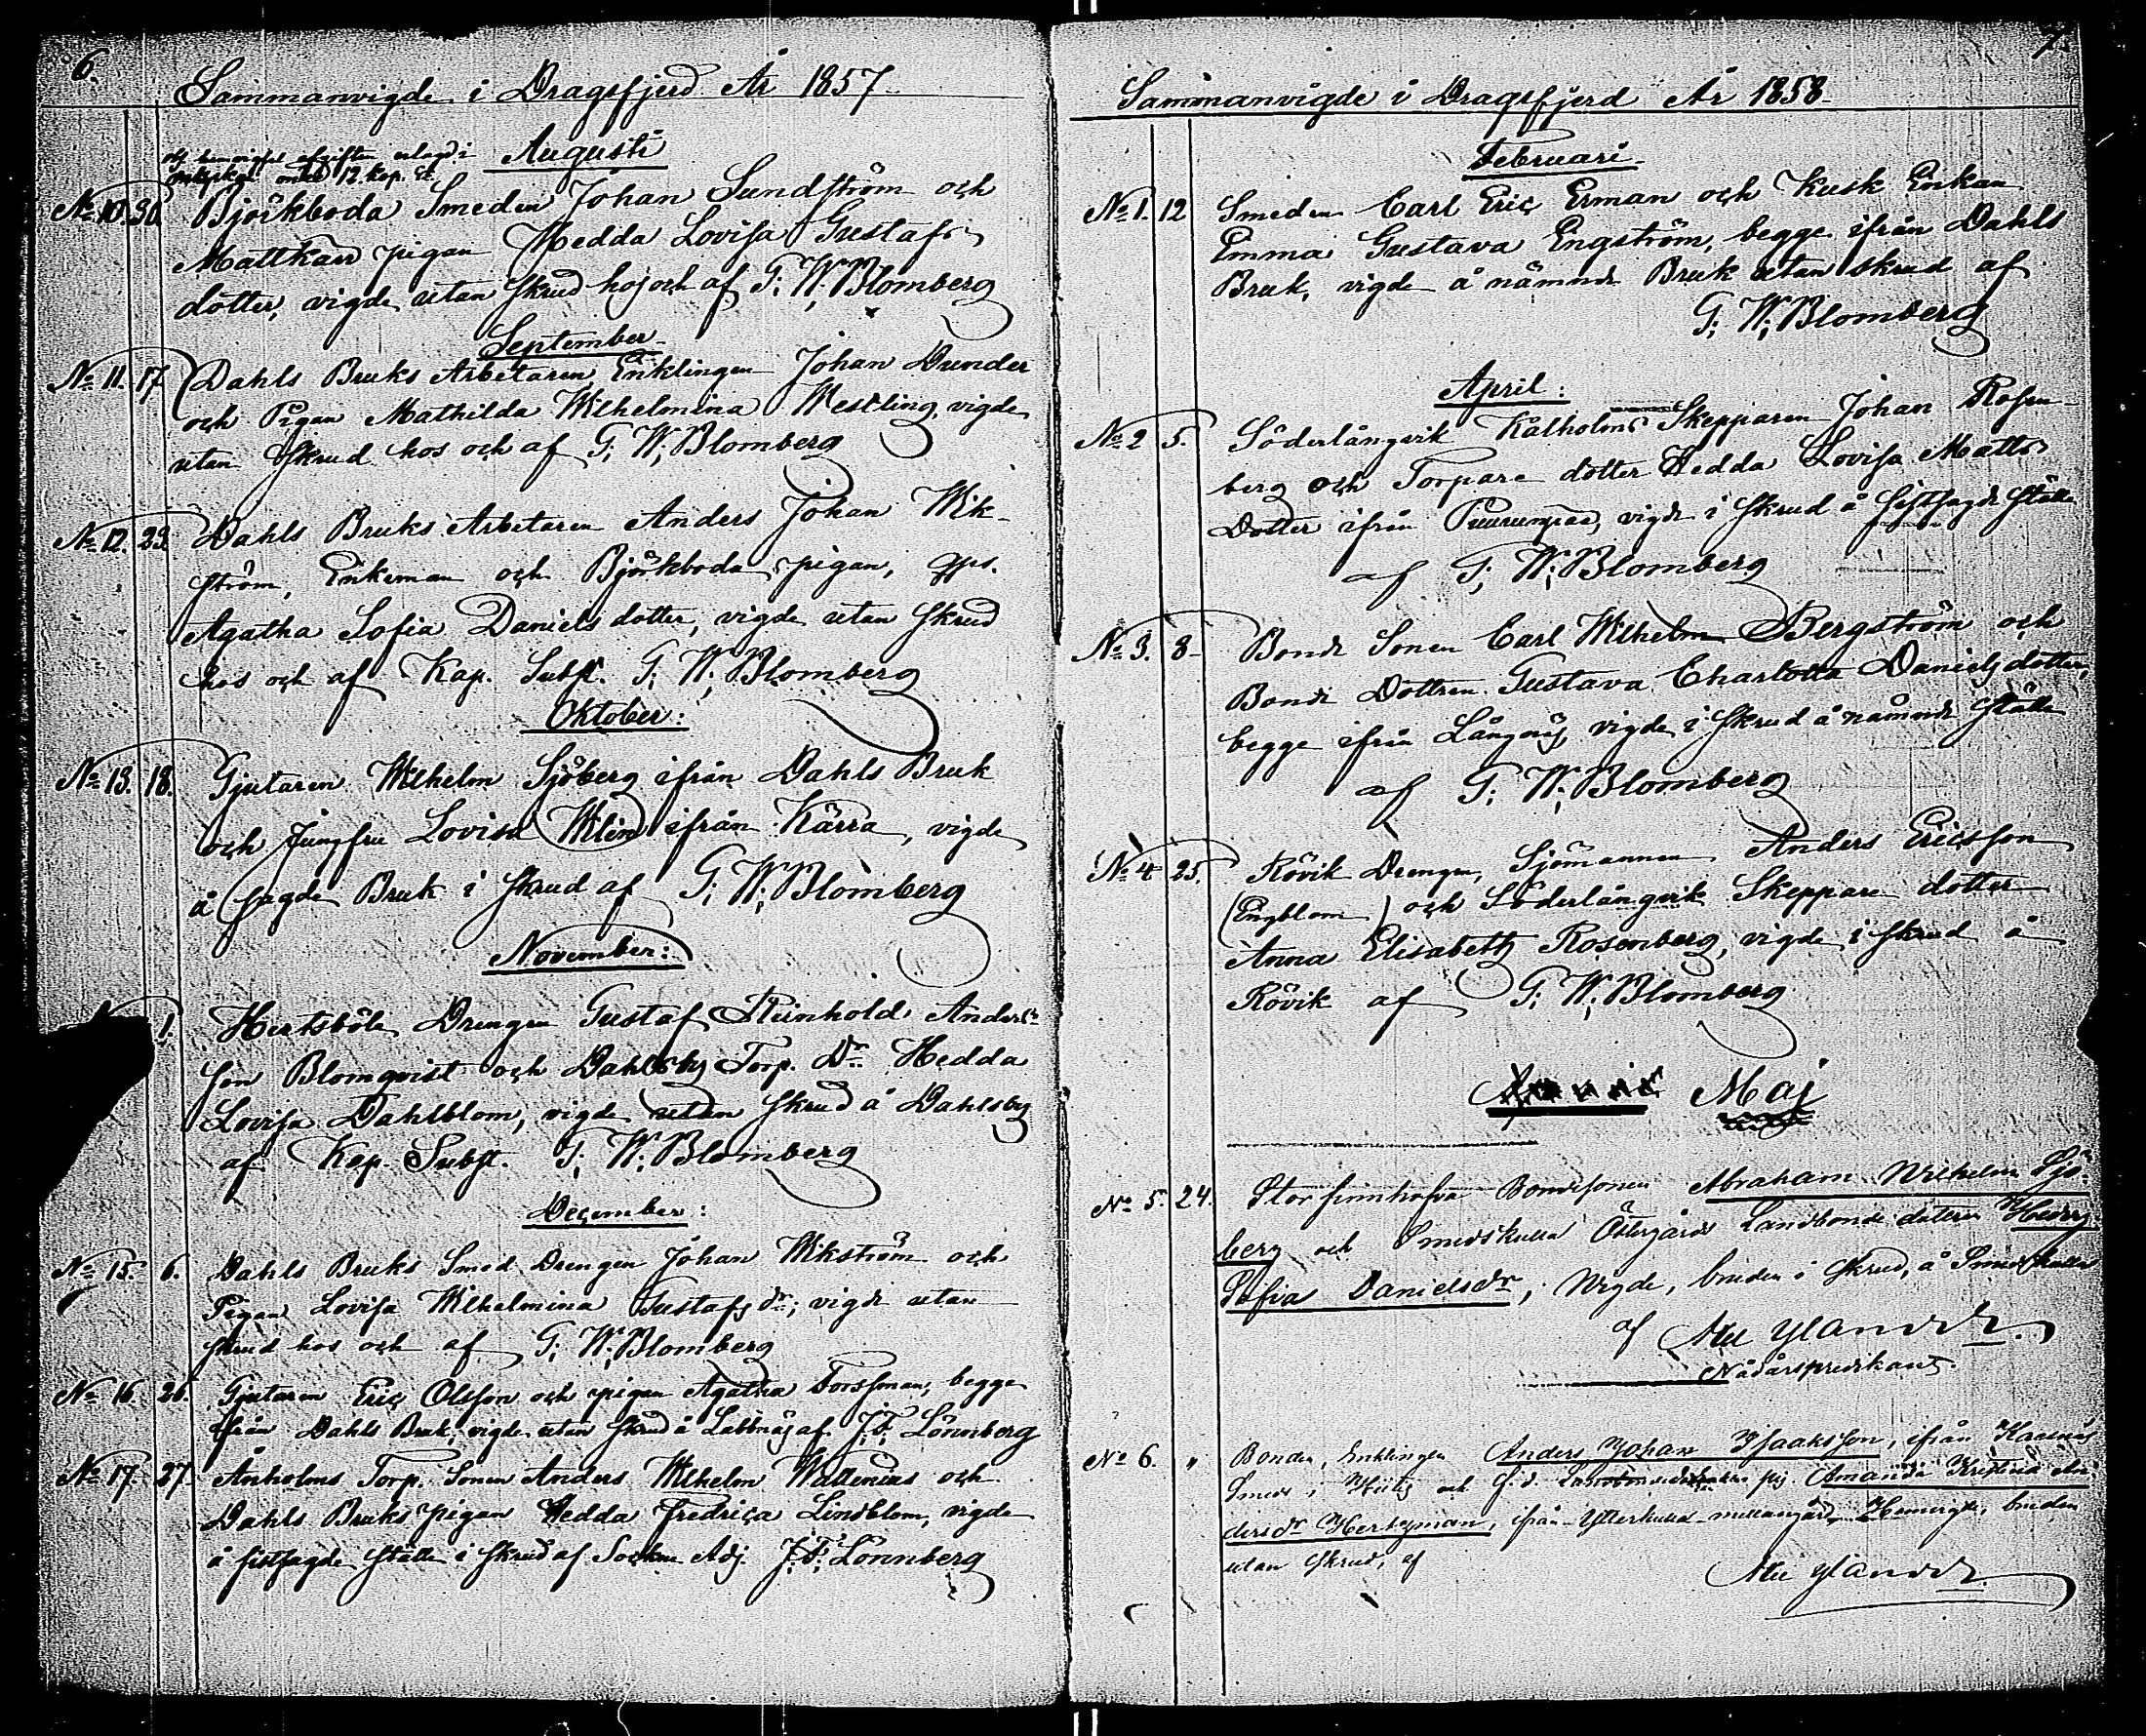 6.
Sammanvigde i Dragsfjerd År 1857
Augusti
12 kop. St.
No 10. 30. Björkboda Smeden Johan Sundström och
Mattkärr pigan Hedda Lovisa Gustafs
dotter, vigde utan skrud hos och af G. W. Blomberg
September
No 11. 17. Dahls Bruks Arbetaren Enklingen Johan Dunder
och Pigan Mathilda Wilhelmina Westling, vigde
utan Skrud hos och af G. W. Blomberg
No 12. 23. Dahls Bruks Arbetaren Anders Johan Wik-
ström, Enkeman och Björkboda pigan,
Agatha Sofia Daniels dotter, vigde utan skrud
hos och af Kap. Subst. G. W. Blomberg
Oktober:
No 13. 18. Gjutaren Wilhelm Sjöberg ifrån Dahls Bruk
och Jungfru Lovisa Wilén ifrån Kärra, vigde
å sagde Bruk i skrud af G. W. Blomberg
November:
1. Hertsböle Drengen Gustaf Reinhold Anders
son Blomqvist och Dahlsby Torp. Dr. Hedda
Lovisa Dahlblom, vigde utan skrud å Dahlsby
af Kap. Subst. G. W. Blomberg
December:
No 15. 6. Dahls Bruks Smed Drengen Johan Wikström och
Pigan Lovisa Wilhelmina Gustafs dr; vigde utan
skrud hos och af G. W. Blomberg
No 16. 26. Gjutaren Eric Olsson och pigan Agatha Forssman, begge
ifrån Dahls Bruk, vigde utan skrud å Labbnäs af J. F. Lönnberg
No 17. 27. Ånholms Torp. Sonen Anders Wilhelm Wallenius och
Dahls Bruks pigan Hedda Fredrica Lindblom, vigde
å sistsagde ställe i skrud af Sockne Adj. J. F. Lönnberg
7.
Sammanvigde i Dragsfjerd År 1858
Februari
No 1. 12 Smeden Carl Eric Erman och Kusk Enkan
Emma Gustava Engström, begge ifrån Dahls
Bruk, vigde å nämnde Bruk utan skrud af
G. W. Blomberg
April:
No 2 5. Söderlångvik Kalholms Skepparen Johan Rosen-
berg och Torpare dotter Hedda Lovisa Matts
Dotter ifrån vigde i skrud å sistsagde ställe
af G. W. Blomberg
No 3. 8 Bonde Sonen Carl Wilhelm Bergström och
Bonde Dottren Gustava Charlotta Daniels dotter,
begge ifrån Långnäs, vigde i skrud å nämnde ställe
af G. W. Blomberg
No 4 25. Rövik Drengen, Sjömannen Anders Ericsson
(Engblom) och Söderlångvik Skeppare dotter
Anna Elisabeth Rosenberg, vigde i skrud å
Rövik af G. W. Blomberg
Maj
No 5. 24. Stor finnhofva Bondesonen Abraham Wilhelm Sjö-
berg och Smedskulla Östergårds Landbonde dottern
Sofia Danielsdr, Vigde, bruden i skrud, å Smedskulla
af Ylander
Nådårspredikant.
No 6. " Bonden, Enklingen Anders Johan Isaaksson, ifrån
Smeds i och f. d. pig. Amanda Kristina An-
dersdr ifrån Ytterkulla mellangård, Hemvigde, bruden
utan skrud, af
Ylander